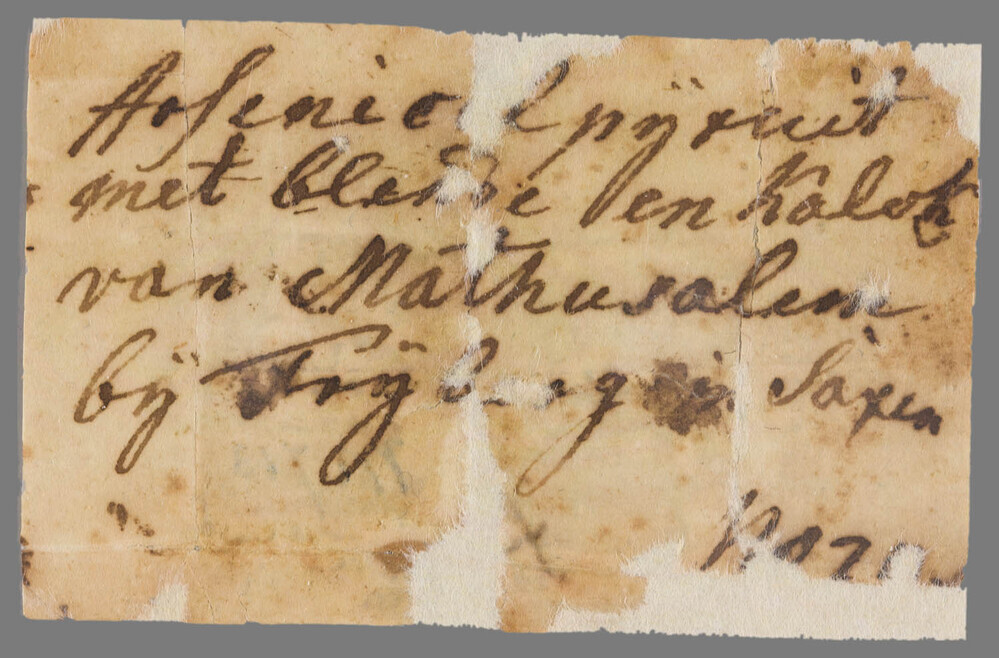 Arsenical pyriit
met blende en kalch
van Mathusalem
bij Frijberg in Saxen